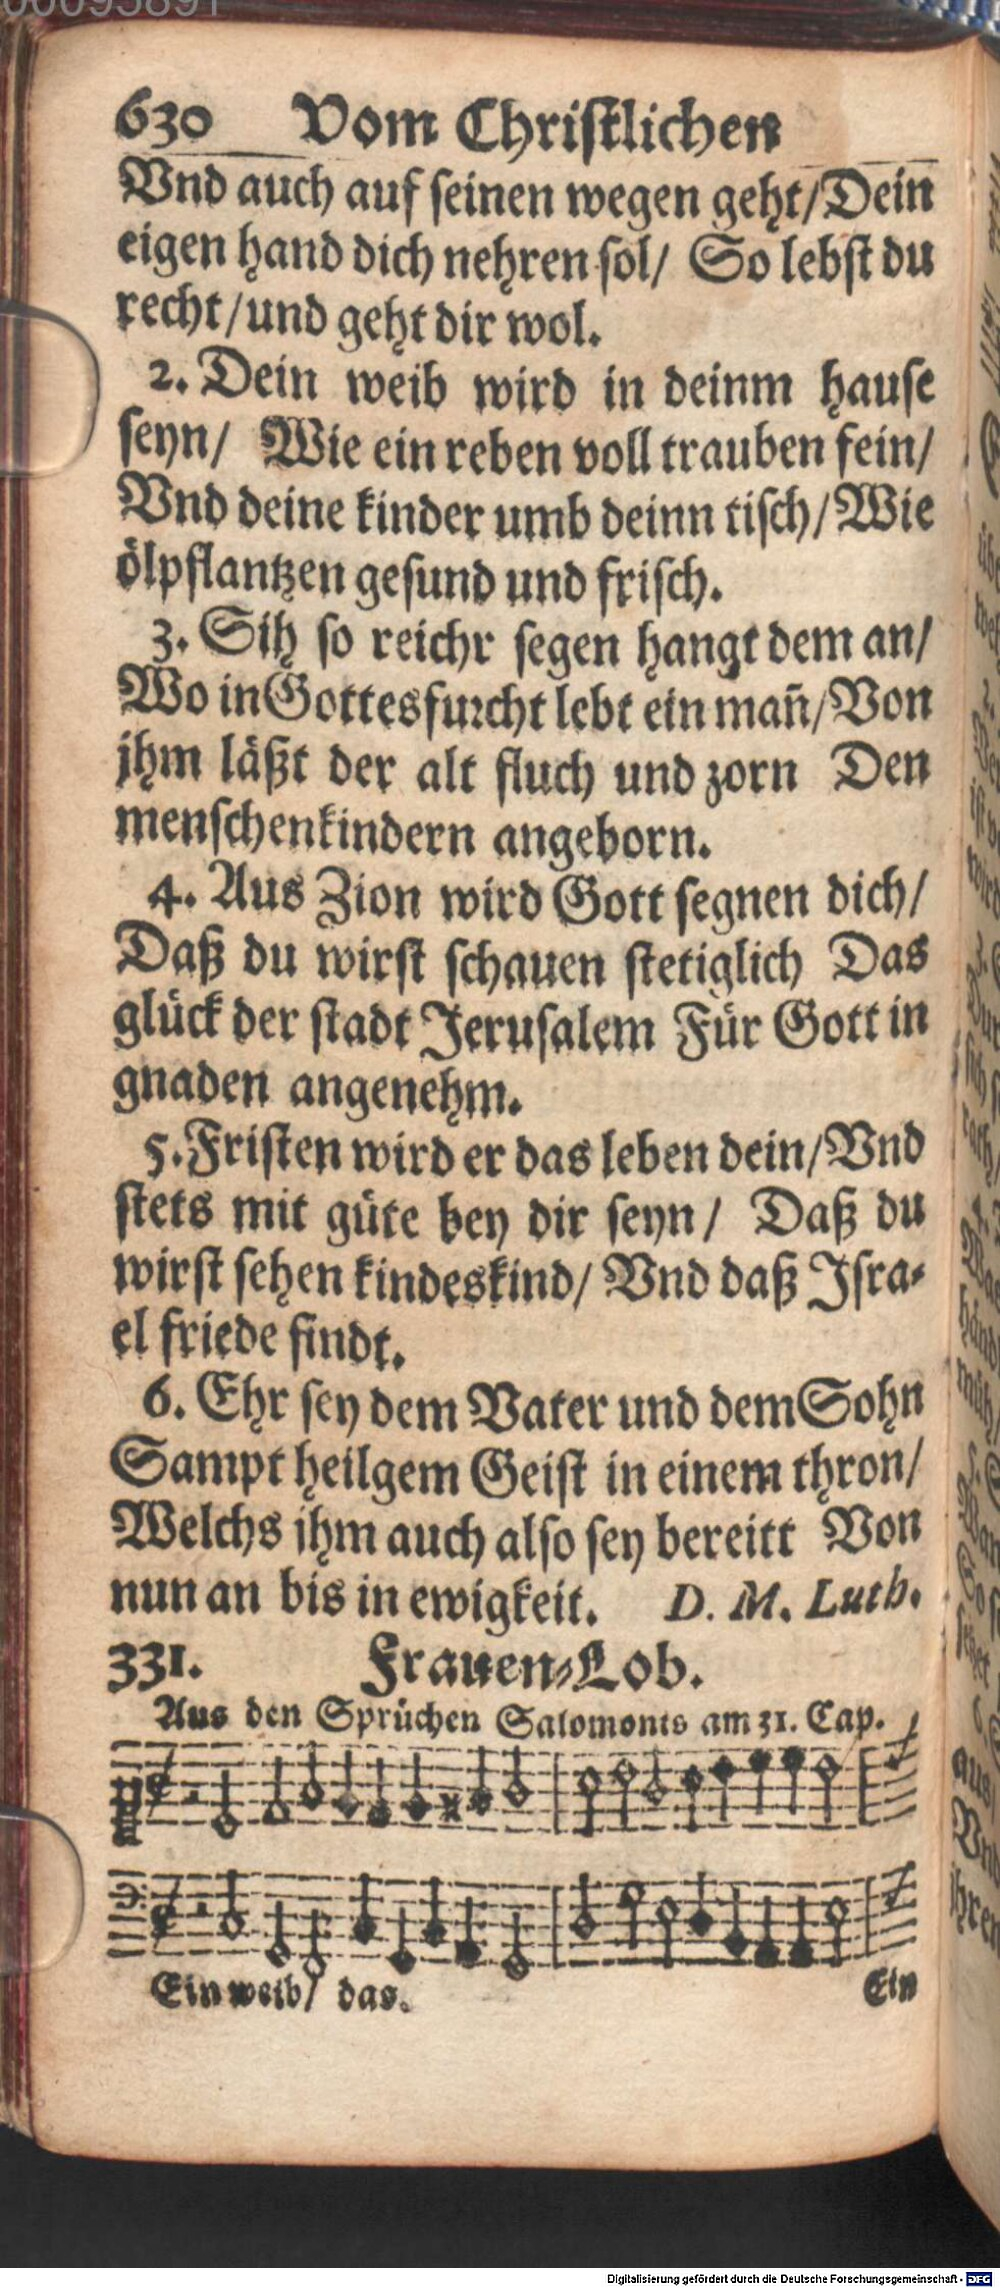 00095891
630 Vom Christlichen
Vnd auch auf seinen wegen geht/Dein
eigen hand dich nehren sol/ So lebst du
recht/und geht dir wol.
2. Dein weib wird in deinm hause
seyn/ Wie ein reben voll trauben fein/
Vnd deine kinder umb deinn tisch/Wie
ölpflantzen gesund und frisch.
3. Sih so reichr segen hangt dem an/
Wo in Gottesfurcht lebt ein mañ/Von
jhm läßt der alt fluch und zorn Den
menschenkindern angeborn.
4. Aus Zion wird Gott segnen dich/
Daß du wirst schauen stetiglich Das
glück der stadt Jerusalem Für Gott in
gnaden angenehm.
5. Fristen wird er das leben dein/Vnd
stets mit güte bey dir seyn/ Daß du
wirst sehen kindeskind/ Vnd daß Jsra-
el friede findt.
6. Ehr sey dem Vater und dem Sohn
Sampt heilgem Geist in einem thron/
Welchs jhm auch also sey bereitt Von
nun an bis in ewigkeit. D. M. Luth.
331. Frauen-Lob.
Aus den Sprüchen Salomonis am 31. Cap.
Ein weib/ das.
Ein
Digitalisierung gefördert durch die Deutsche Forschungsgemeinschaft - DFG